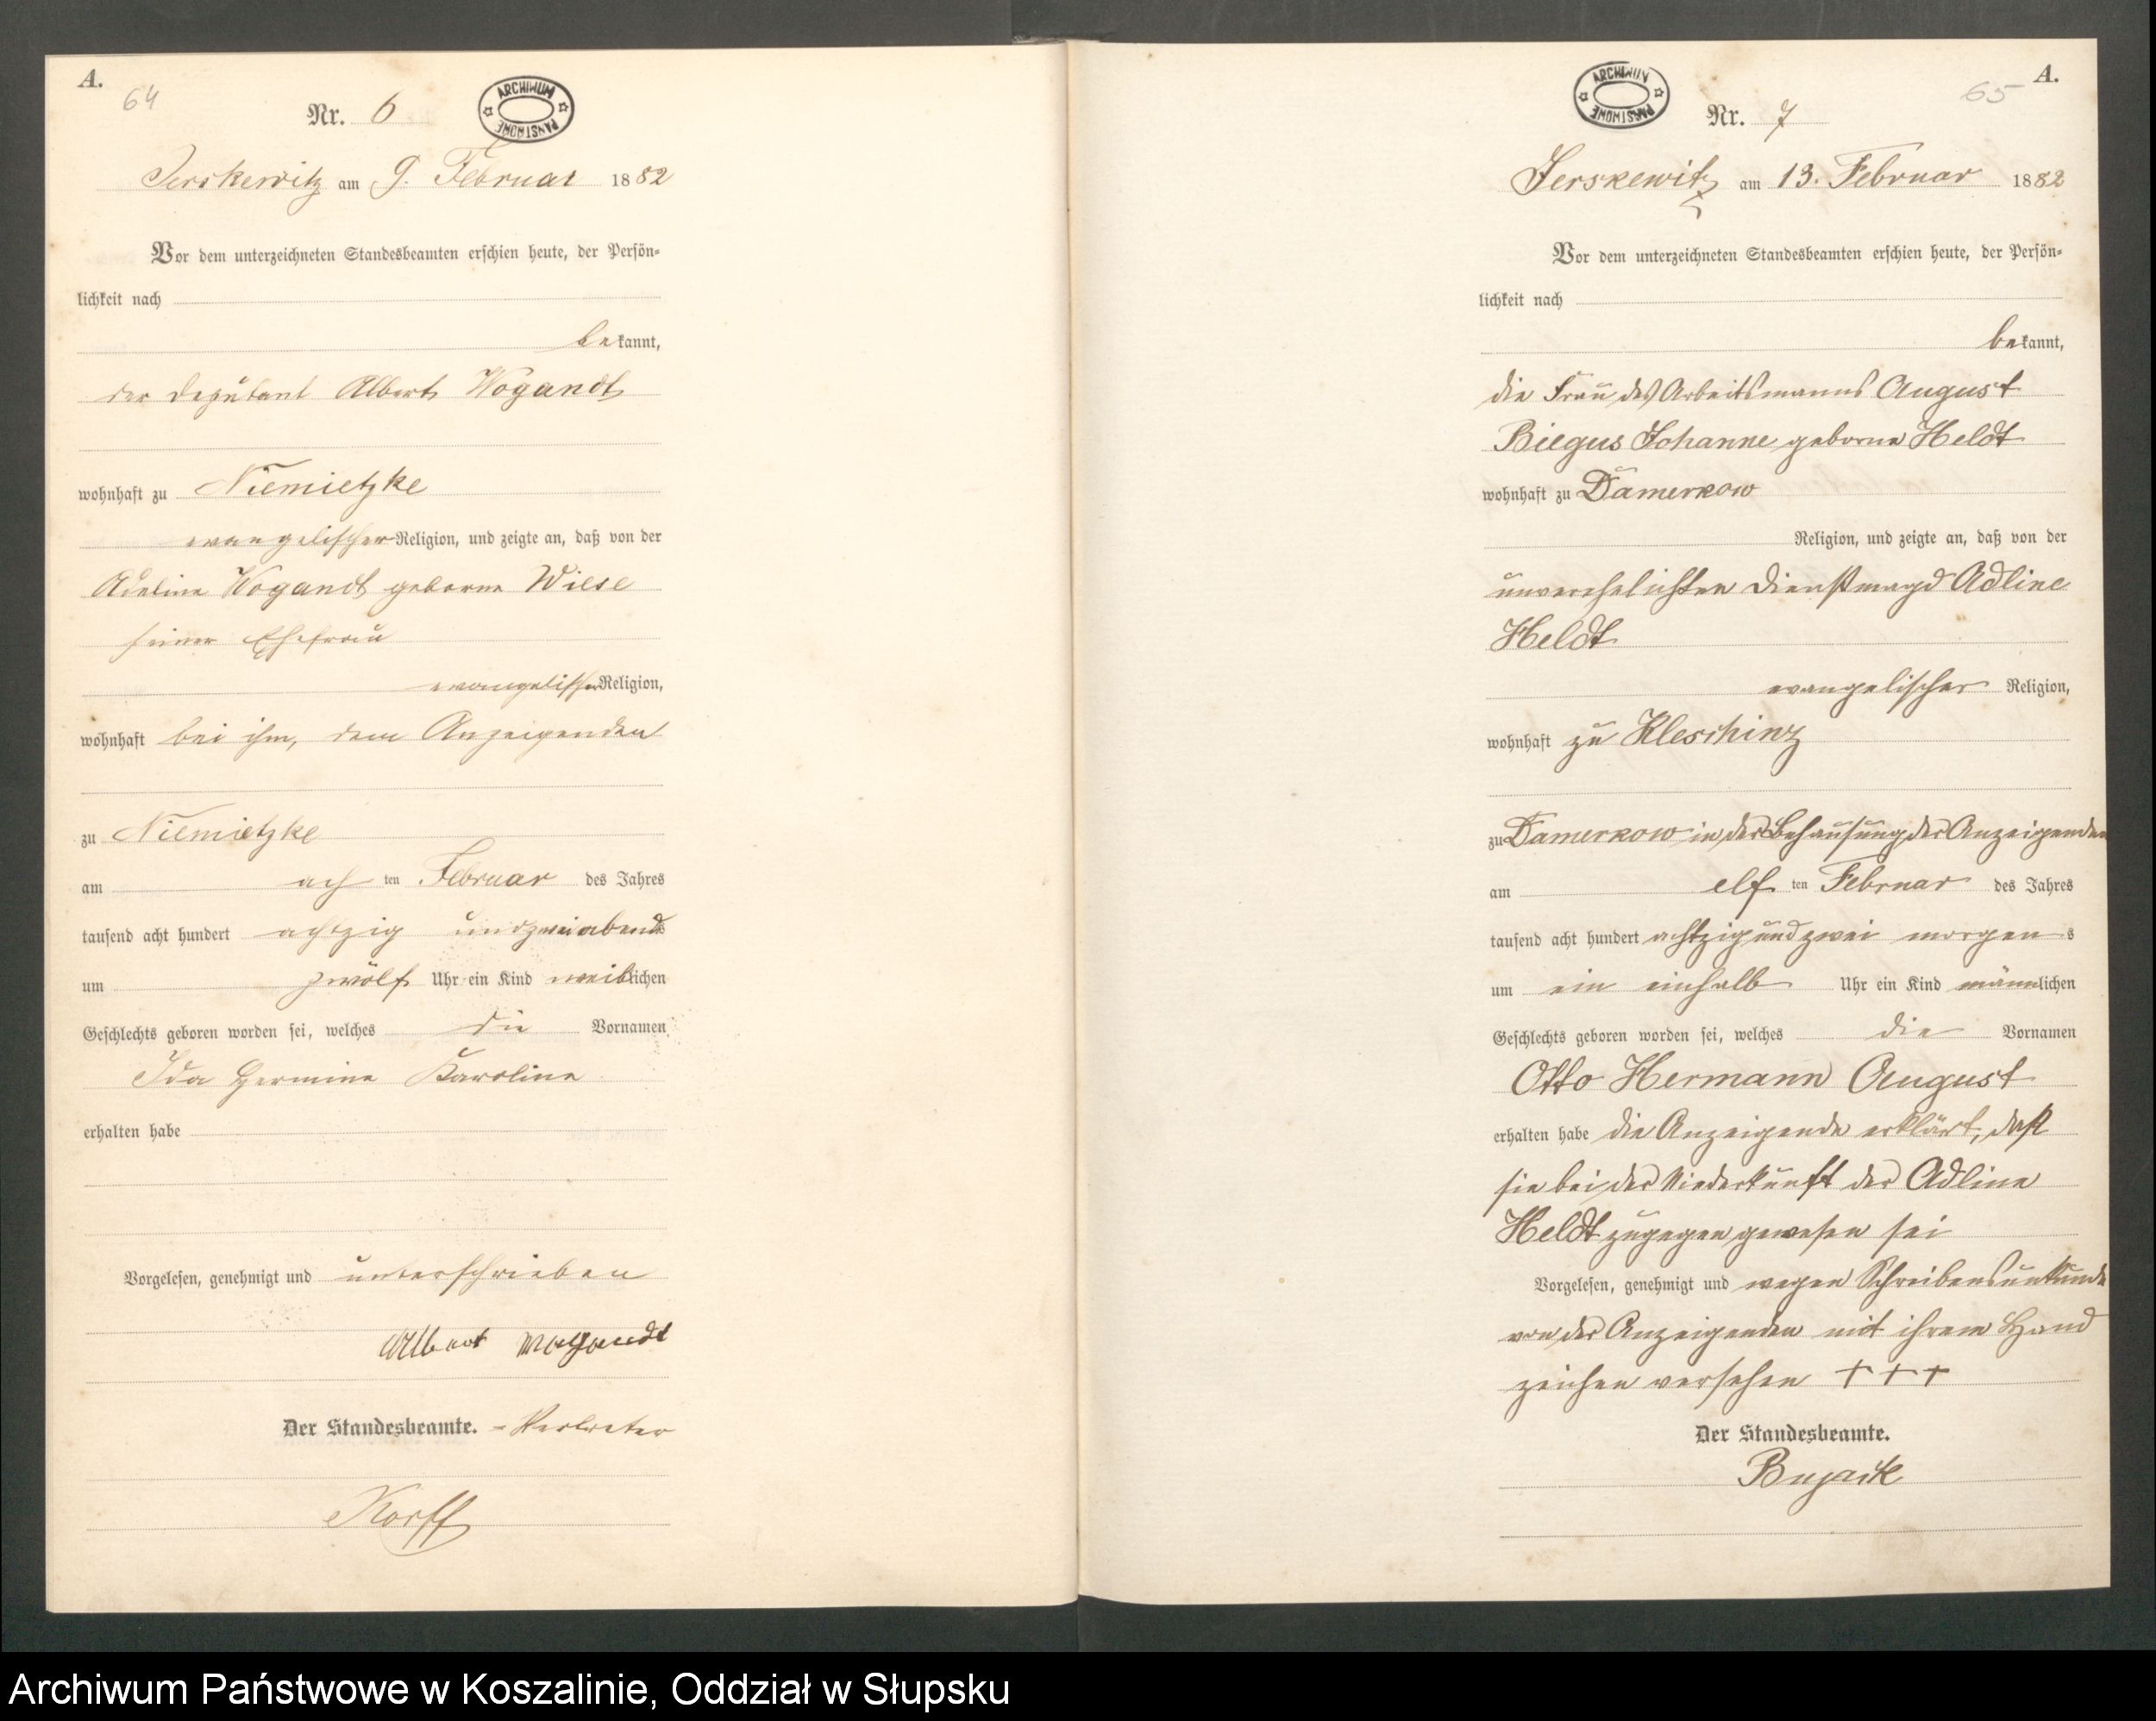 A.
64
Nr. 6
ARCHIWUM PAŃSTWOWE
Jerskewitz am 9. Februar 1882
Vor dem unterzeichneten Standesbeamten erschien heute, der Persön-
lichkeit nach
bekannt,
der Deputant Albert Wogandt
wohnhaft zu Niemietzke
evangelischer Religion, und zeigte an, daß von der
Adeline Wogandt geborne Wiese
seiner Ehefrau
evangelischer Religion,
wohnhaft bei ihm, dem Anzeigenden
zu Niemietzke
am ach ten Februar des Jahres
tausend acht hundert achtzig und zwei abends
um zwölf Uhr ein Kind weiblichen
Geschlechts geboren worden sei, welches die Vornamen
Ida Hermine Karoline
erhalten habe
Vorgelesen, genehmigt und unterschrieben
Albert Wogandt
Der Standesbeamte. - Vertreter
Korff
A.
65
ARCHIWUM PAŃSTWOWE
Nr. 7
Jerskewitz am 13. Februar 1882
Vor dem unterzeichneten Standesbeamten erschien heute, der Persön-
lichkeit nach
bekannt,
die Frau des Arbeitsmanns August
Biegus Johanne geborne Heldt
wohnhaft zu Damerkow
Religion, und zeigte an, daß von der
unverehelichten Dienstmagd Adline
Heldt
evangelischer Religion,
wohnhaft zu Kleschinz
zu Damerkow in der Behausung der Anzeigenden
am elf ten Februar des Jahres
tausend acht hundert achtzig und zwei morgens
um ein einhalb Uhr ein Kind männlichen
Geschlechts geboren worden sei, welches die Vornamen
Otto Hermann August
erhalten habe die Anzeigende erklärt, daß
sie bei der Niederkunft der Adline
Heldt zugegen gewesen sei
Vorgelesen, genehmigt und wegen Schreibensunkunde
von der Anzeigenden mit ihrem Hand
zeichen versehen + + +
Der Standesbeamte.
Bujack
Archiwum Państwowe w Koszalinie, Oddział w Słupsku